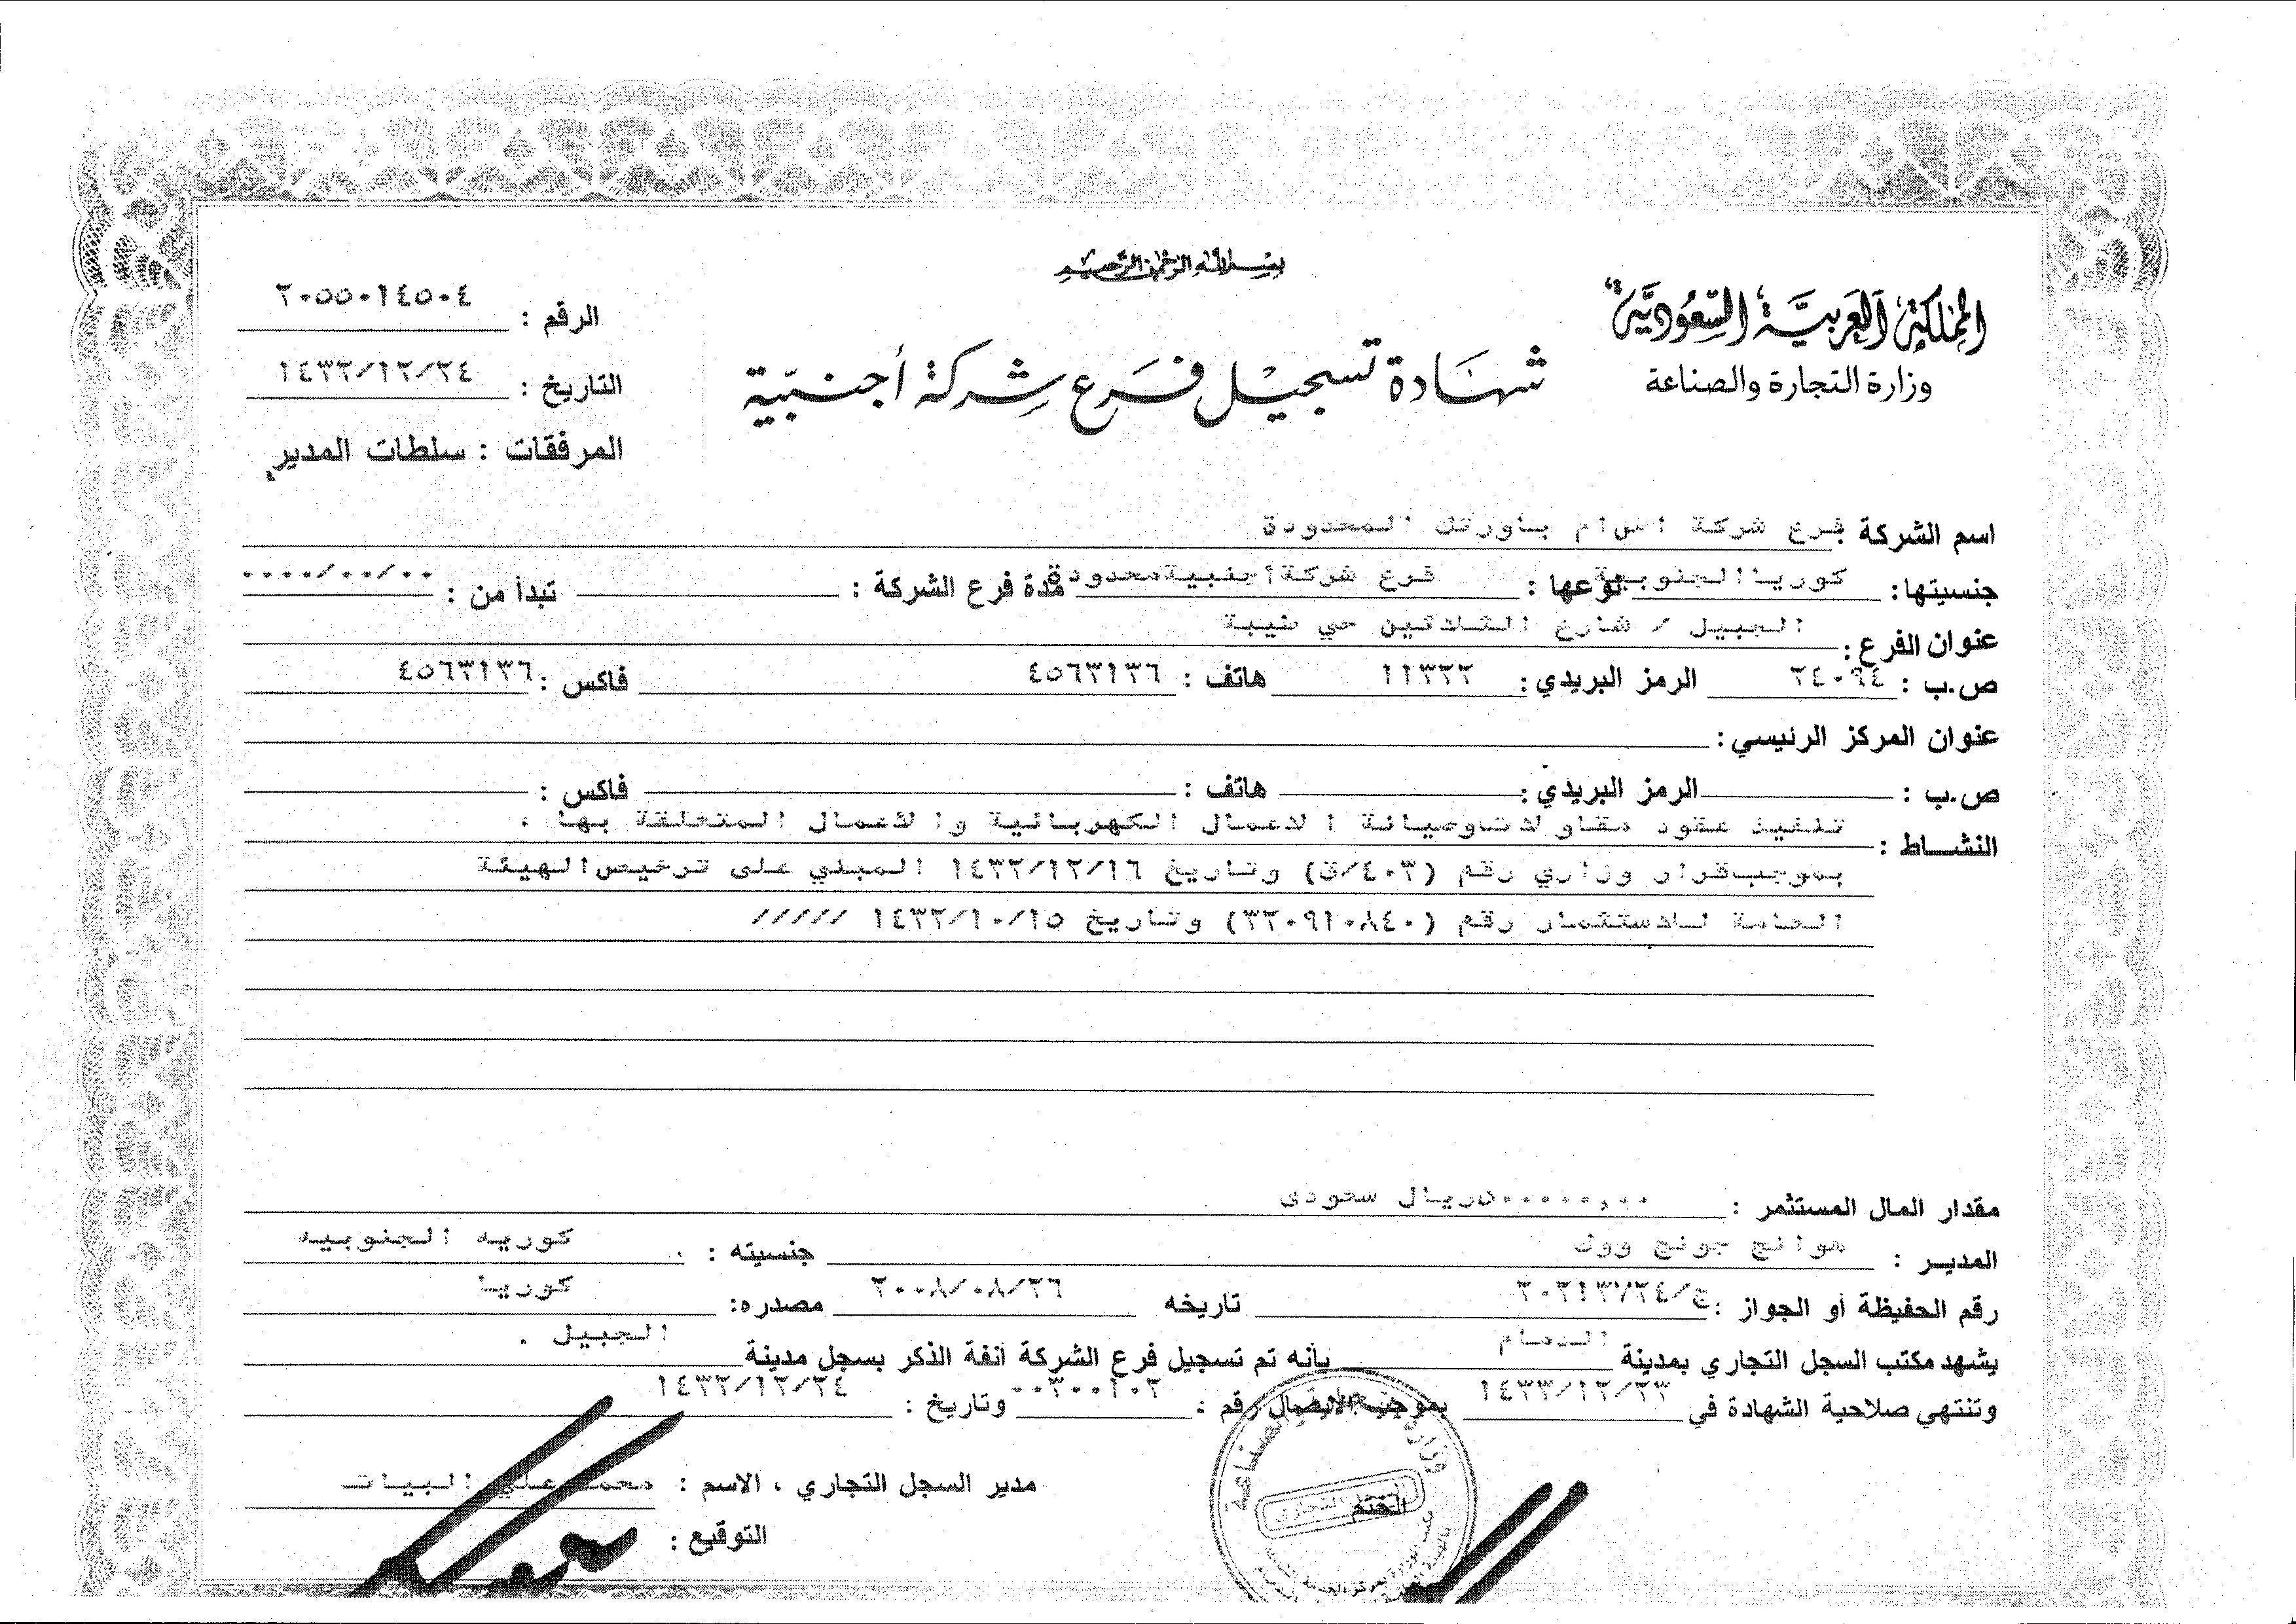 بسم الله الرحمن الرحيم
المملكة العربية السعودية
وزارة التجارة والصناعة
شهادة تسجيل فرع شركة أجنبية
الرقم : ٢٠٥٥٠١٤٥٠٤
التاريخ : ١٤٣٢/١٢/٢٤
المرفقات : سلطات المدير
اسم الشركة : فرع شركة اس ام باورتك المحدودة
جنسيتها: كوريا الجنوبية نوعها : فرع شركة اجنبية محدودة مدة فرع الشركة : تبدأ من : ٠٠٠٠/٠٠/٠٠
عنوان الفرع : الجبيل / شارع الثلاثين حي طيبة
ص.ب : ٢٤٠٩٤ الرمز البريدي : ١١٣٢٢ هاتف : ٤٥٦٣١٣٦ فاكس : ٤٥٦٣١٣٦
عنوان المركز الرئيسي :
ص.ب : الرمز البريدي : هاتف : فاكس :
النشاط : تنفيذ عقود مقاولات وصيانة الاعمال الكهربائية والاعمال المتعلقة بها .
بموجب قرار وزاري رقم (٤٠٣/ق) وتاريخ ١٤٣٢/١٢/١٦ المبني على ترخيص الهيئة
العامة للاستثمار رقم (٣٢٠٩١٠٨٤٠) وتاريخ ١٤٣٢/١٠/١٥ /////
مقدار المال المستثمر : ٥٠٠٠٠٠,٠٠ ريال سعودى
المدير : هوانج جونج ووك جنسيته : كوريه الجنوبيه
رقم الحفيظة أو الجواز : ج/٣٠٢١٣٧٢٤ تاريخه ٢٠٠٨/٠٨/٢٦ مصدره: كوريا
يشهد مكتب السجل التجاري بمدينة الدمام بأنه تم تسجيل فرع الشركة آنفة الذكر بسجل مدينة الجبيل .
وتنتهي صلاحية الشهادة في ١٤٣٣/١٢/٢٣ بموجب الايصال رقم : ٠٠٣٠٠١٠٢ وتاريخ : ١٤٣٢/١٢/٢٤
مدير السجل التجاري ، الاسم : محمد علي البيات
الختم
التوقيع :